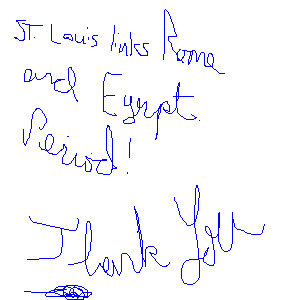 ST. Louis links Rome
and Egyrpt.
Period!
Thank You